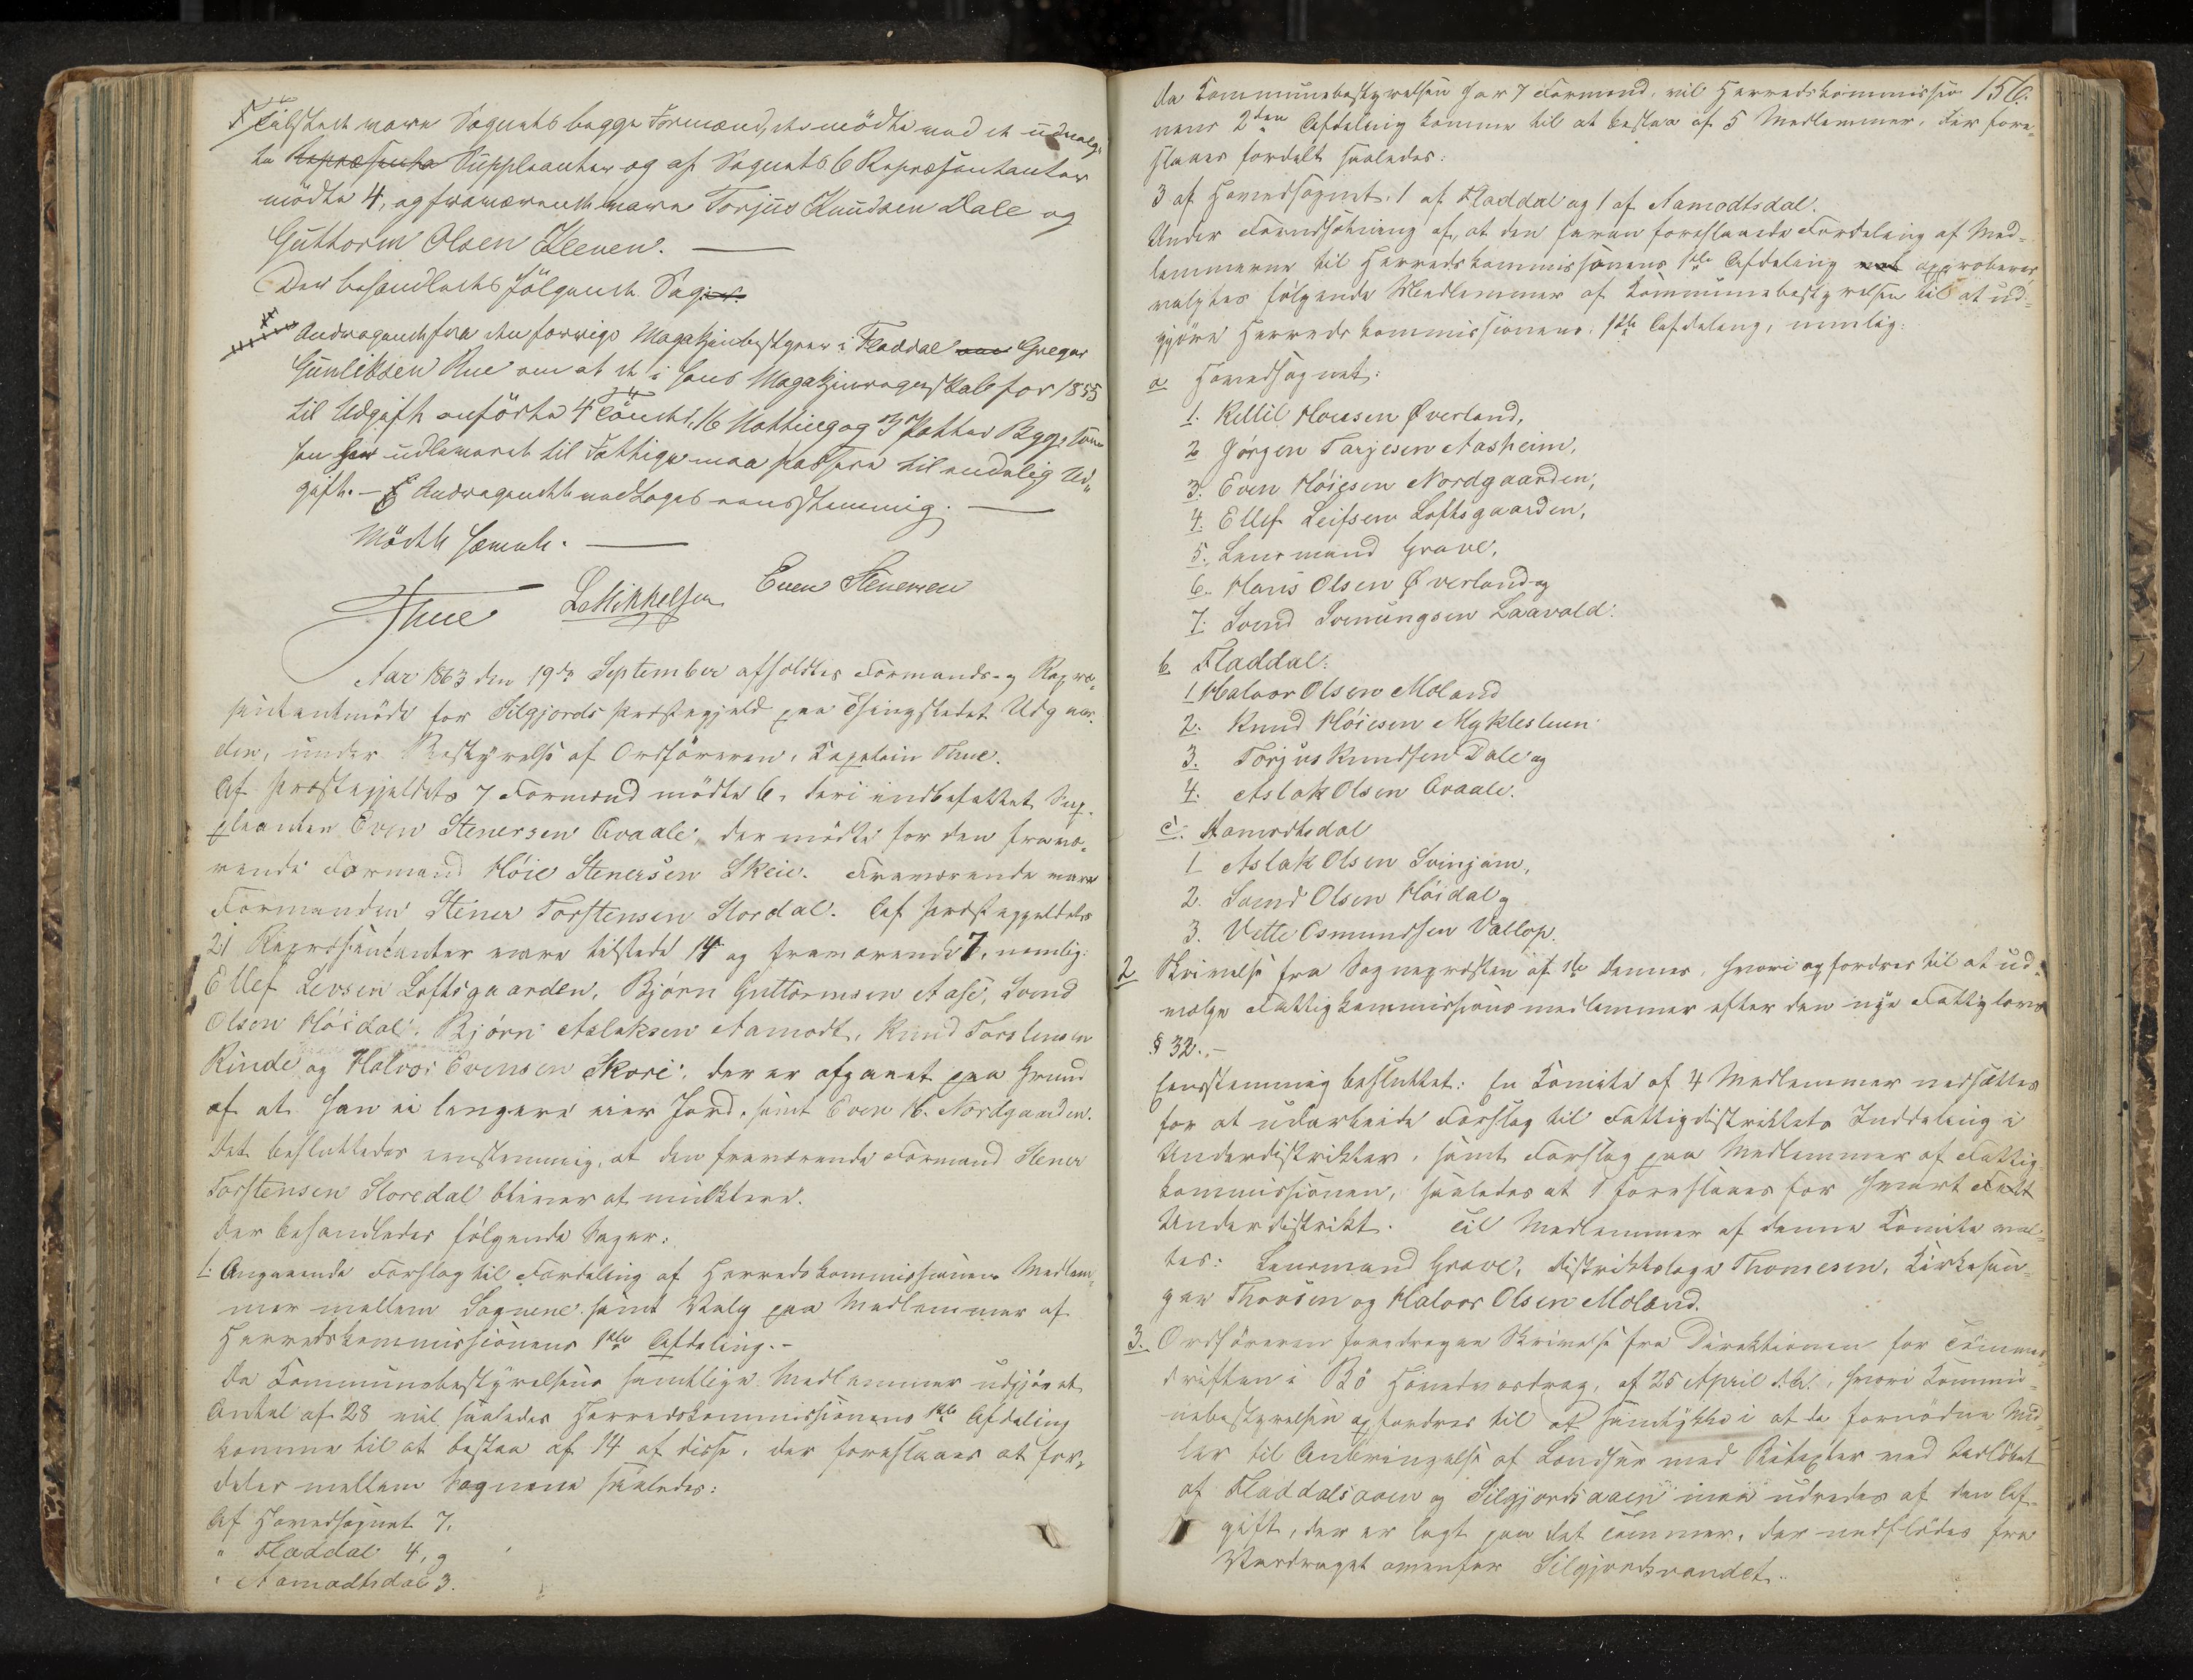 Tilstede vare Sognets begge Formænd, der mødte med de udvalg-
te Repræsenta Suppleanter og af Sognets 6 Repræsentanter
mødte 4, og fraværende vare Torjus Knudsen Dale og
Guttorm Olsen Kleven. —
Der behandledes følgende Sag:
Andragende fra den forrige Magazinbestyrer i Fladdal Gregar
Gunliksen Rue om at de i hans Magazinregnskab for 1855
til Udgift anførte 4 Tønder, 16 Notting og 3 Potter Byg, som
han har udlaaret til Fattige maa passere til endelig Ud-
gift. — Andragendet modtoges eensstemmig. —
Mødte hævede. —
Thue LMikkelsen Even Stenersen
Aar 1863 den 19de September afholdtes Formands- og Repræ-
sentantmøde for Silgjords Præstegjeld paa Thingstedet Udgaar-
den, under Bestyrelse af Ordføreren, Kaptein Thue.
Af Præstegjeldets 7 Formænd mødte 6, deri indbefattet Sup-
pleanten Even Stenersen Avaale, der mødte for den fravæ-
rende Formand Høie Stenersen Skeie. Fraværende vare
Formanden Stener Torstensen Stordal. Af Præstegjeldets
21 Repræsentanter vare tilstede 14 og fraværende 7, nemlig:
Ellef Levsen Loftsgaarden, Bjørn Guttormsen Aase, Svend
Olsen Høidal, Bjørn Aslaksen Aamodt, Knud Torstensen
Rinde og Halvor Evensen Skori, der er afgaaet paa Grund
af at han ei længere eier Jord, samt Even H. Nordgaarden.
Det besluttedes eenstemmig, at den fraværende Formand Stener
Torstensen Storedal bliver at mulktere.
Der behandledes følgende Sager:
1. Angaaende Forslag til Fordeling af Herredskommissionens Medlem-
mer mellem Sognene samt Valg paa Medlemmer af
Herredskommissionens 1ste Afdeling. –
Da Kommunebestyrelsens samtlige Medlemmer udgjør et
Antal af 28 vil saaledes Herredskommissionens 1ste Afdeling
komme til at bestaa af 14 af disse, der foreslaaes at for-
deles mellem Sognene saaledes:
Af Hovedsognet 7,
" Fladdal 4, og
" Aamodtsdal 3.
156.
Da Kommunebestyrelsen har 7 Formænd, vil Herredskommissio-
nens 2den Afdeling komme til at bestaa af 5 Medlemmer, der fore-
slaaes fordelt saaledes:
3 af Hovedsognet, 1 af Fladdal og 1 af Aamodtsdal.
Under Forudsætning af, at den saaan foreslaaede Fordeling af Med-
lemmerne til Herredskommissionens 1ste Afdeling approberes
valgtes følgende Medlemmer af Kommunebestyrelsen til at ud-
gjøre Herredskommissionens 1ste Afdeling, nemlig:
a Hovedsognet:
1. Kittil Hansen Øverland,
2 Jørgen Tarjesen Aasheim,
3. Even Høiesen Nordgaarden,
4. Ellef Leifsen Loftsgaarden,
5. Lensmand Grave,
6. Hans Olsen Øverland og
7. Svend Svenungsen Laavald.
b. Fladdal:
1 Halvor Olsen Moland
2. Knud Høiesen Myklestuen
3. Torjus Knudsen Dale og
4. Aslak Olsen Avaale.
c. Aamodtsdal
1 Aslak Olsen Svinjam,
2. Svend Olsen Høidal og
3. Vetle Osmundsen Vallop.
2 Skrivelse fra Sognepræsten af 1ste dennes, hvori opfordres til at ud-
vælge Fattigkommissionsmedlemmer efter den nye Fattiglovs
§ 32. –
Eensstemmig besluttet: En Komite af 4 Medlemmer nedsættes
for at udarbeide Forslag til Fattigdistriktets Inddeling i
Underdistrikter, samt Forslag paa Medlemmer af Fattig-
kommissionen, saaledes at 1 foreslaaes for hvert
Underdistrikt. Til Medlemmer af denne Komite val-
tes: Lensmand Grave, Distriktslæge Thomesen, Kirkesan-
ger Thoresen og Halvor Olsen Moland.
3. Ordføreren foredragne Skrivelse fra Direktionen for Tømmer-
driften i Bø Hovedvasdrag, af 25 April d. A., hvori Kommu-
nebestyrelsen opfordres til at samtykke i at de fornødne Mid-
ler til Anbringelse af Landser med ved Udløbet
af Fladdalsaaen og Silgjordsaaen maa udredes af den Af-
gift, der er lagt paa det Tømmer, der nedflødes fra
Vasdraget ovenfor Silgjordsvandet.